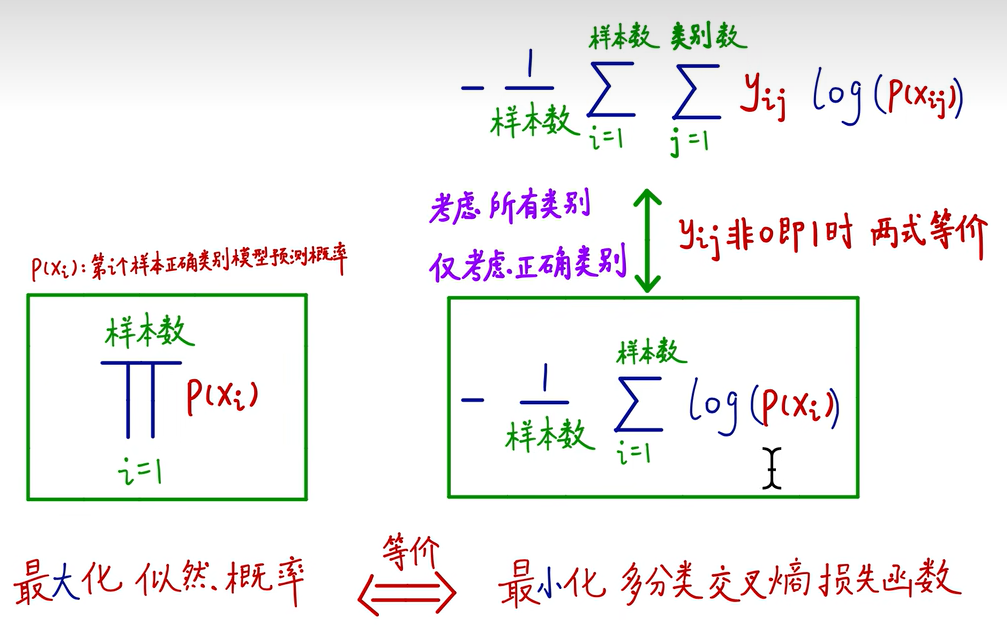 样本数 类别数
- 1/样本数 ∑ i=1 ∑ j=1 yij log(P(xij))
考虑所有类别
仅考虑正确类别
yij非0即1时 两式等价
P(xi):第i个样本正确类别模型预测概率
样本数
∏ P(xi)
i=1
样本数
- 1/样本数 ∑ i=1 log(P(xi))
最大化 似然概率
等价
最小化 多分类交叉熵损失函数